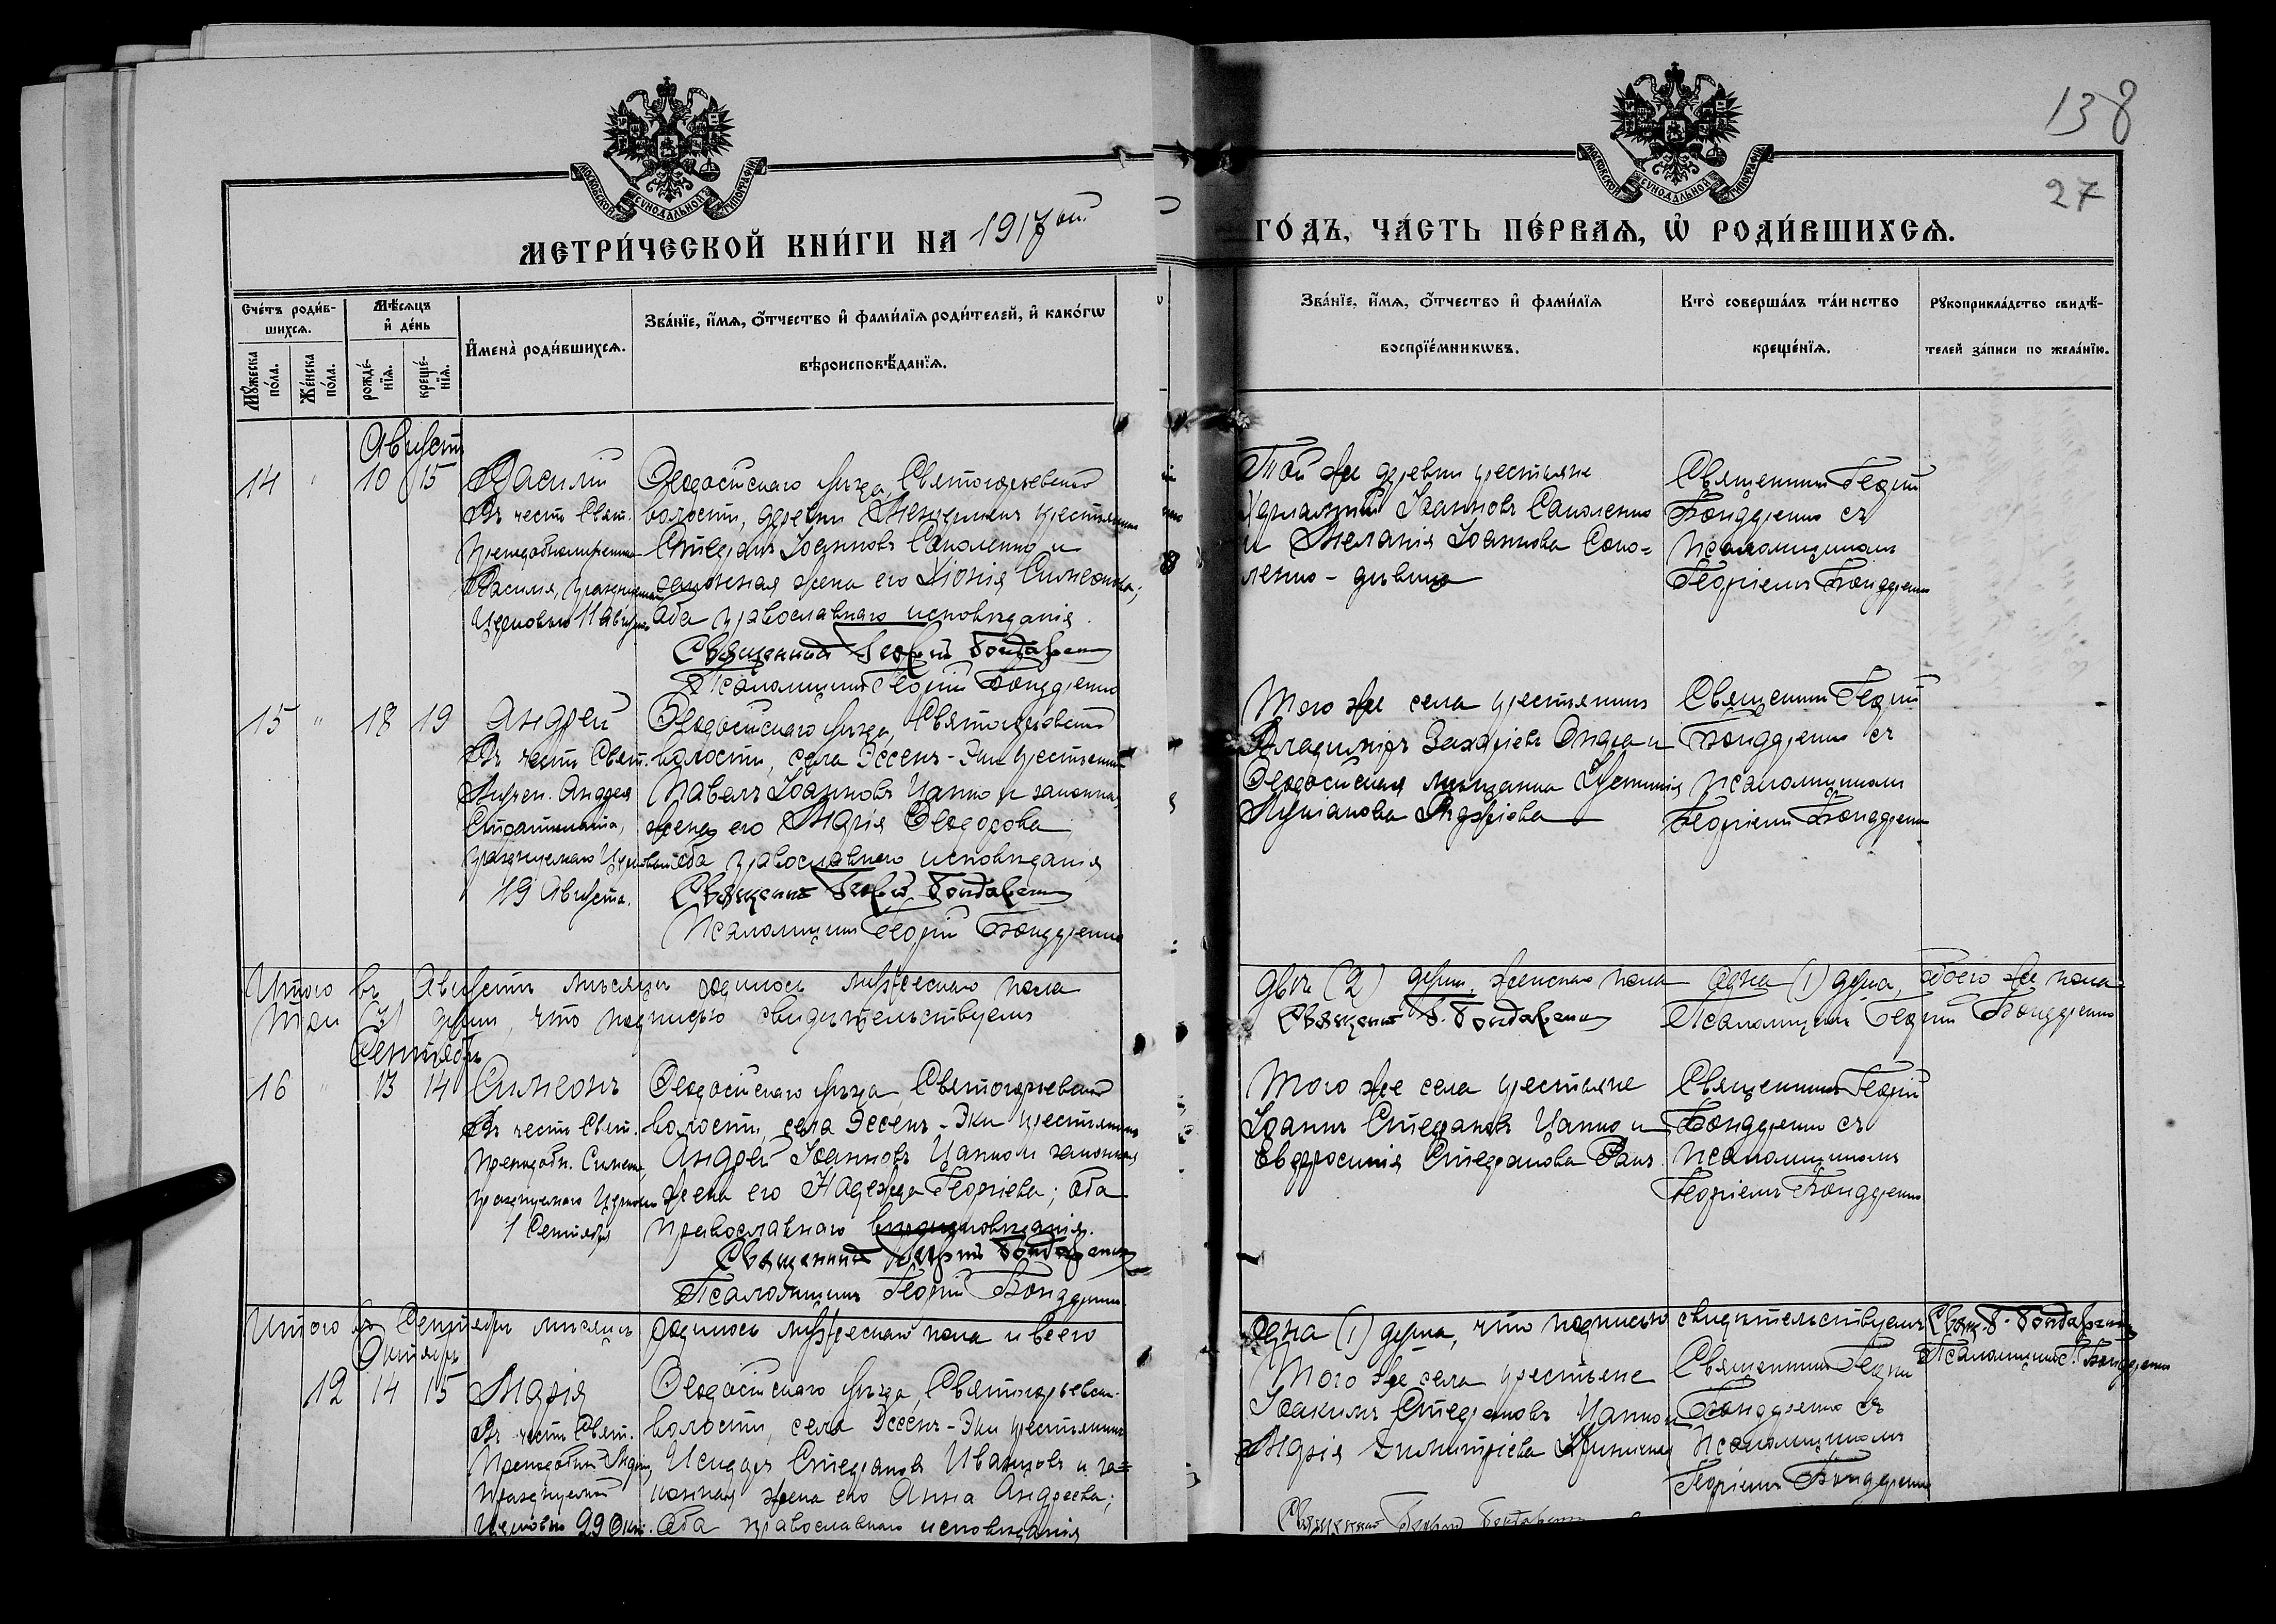 138
27
МОСКОВСКОЙ СѴНОДАЛЬНОЙ ТИПОГРАФІИ
МОСКОВСКОЙ СѴНОДАЛЬНОЙ ТИПОГРАФІИ
МЕТРИ́ЧЕСКОЙ КНИ́ГИ НА 1917ый
ГО́ДЪ, ЧА́СТЬ ПЕ́РВАѦ, Ѡ҆ РОДИ́ВШИХСѦ.
Сче́тъ роди́в-
шихсѧ.
Мꙋ́жеска по́ла.
Же́нска по́ла.
Мѣ́сѧцъ
и҆ де́нь
рожде́-
нїѧ.
креще́-
нїѧ.
И҆мена̀ роди́вшихсѧ.
Зва́нїе, и҆́мѧ, ѻ҆́тчество и҆ фами́лїѧ роди́телей, и҆ како́гѡ
вѣроисповѣ́данїѧ.
Зва́нїе, и҆́мѧ, ѻ҆́тчество и҆ фами́лїѧ
воспрїе́мникѡвъ.
Кто̀ соверша́лъ та́инство
креще́нїѧ.
Рꙋкоприкла́дство свидѣ́-
телей за́писи по жела́нїю.
Августъ
14 " 10 15
Василій
Въ честь Свят.
Василія,
Церковью 11 Августа
Ѳеодосійскаго уѣзда,
волости, деревни крестьянинъ
Стефанъ Іоанновъ Соколенко и
законная жена его Хіонія Симеонова;
оба православнаго исповѣданія.
Священникъ Георгій Бондаренко
Псаломщикъ Георгій Бондаренко
Той же деревни крестьяне
Іоанновъ Соколенко
и Меланія Іоаннова Соко=
ленко - дѣвица
Священникъ Георгій
Бондаренко съ
псаломщикомъ
Георгіемъ Бондаренко
15 " 18 19
Андрей
Въ честь Свят.
Мучен. Андрея
Стратилата,
празднуемаго Церковью
19 Августа.
Ѳеодосійскаго уѣзда,
волости, села Эссенъ-Эки крестьянинъ
Павелъ Іоанновъ Цапко и законная
жена его Марія Ѳеодорова
оба православнаго исповѣданія
Священникъ Георгій Бондаренко
Псаломщикъ Георгій Бондаренко
Того же села крестьянинъ
Владиміръ Захаріевъ и
Ѳеодосійская мѣщанка
Священникъ Георгій
Бондаренко съ
псаломщикомъ
Георгіемъ Бондаренко
Итого въ Августѣ мѣсяцѣ родилось мужескаго пола
двѣ (2) души, женскаго пола одна (1) душа, обоего же пола
три (3) души, что подписью свидѣтельствуемъ
Священникъ Г. Бондаренко Псаломщикъ Георгій Бондаренко
Сентябрь
16 " 13 14
Симеонъ
Въ честь Свят.
Преподобн. Симеона,
празднуемаго Церковью
1 Сентября
Ѳеодосійскаго уѣзда,
волости, села Эссенъ-Эки крестьянинъ
Андрей Іоанновъ Цапко и законная
жена его Надежда Георгіева; оба
православнаго вѣроисповѣданія.
Священникъ Георгій Бондаренко
Псаломщикъ Георгій Бондаренко
Того же села крестьяне
Іоаннъ Стефановъ Цапко и
Евфросинія Стефанова
Священникъ Георгій
Бондаренко съ
псаломщикомъ
Георгіемъ Бондаренко
Итого въ Сентябрѣ мѣсяцѣ родилось мужескаго пола и всего
одна (1) душа, что подписью свидѣтельствуемъ Свящ. Г. Бондаренко
Псаломщикъ Г. Бондаренко
Октябрь
12 14 15
Марія
Въ честь Свят.
Преподобной Маріи,
празднуемой
Церковью 29 Окт.
Ѳеодосійскаго уѣзда,
волости, села Эссенъ-Эки крестьянинъ
Стефановъ Ивановъ и за=
конная жена его Анна Андреева;
оба православнаго исповѣданія
Того же села крестьяне
Іоакимъ Стефановъ Цапко и
Марія Димитріева
Священникъ Георгій
Бондаренко съ
псаломщикомъ
Георгіемъ Бондаренко
Священникъ Георгій Бондаренко